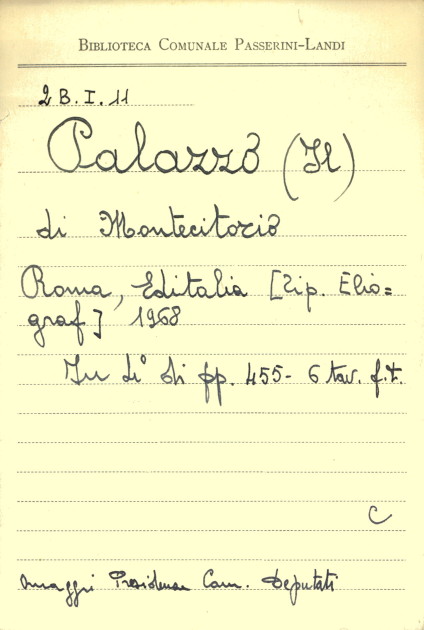 BIBLIOTECA COMUNALE PASSERINI-LANDI
2 B. I. 11
Palazzo (Il)
di Montecitorio
Roma, Editalia [Tip. Elio=
graf] 1968
In 4° di pp. 455 - 6 tav. f.t.
C
omaggi Presidenza Cam. Deputati